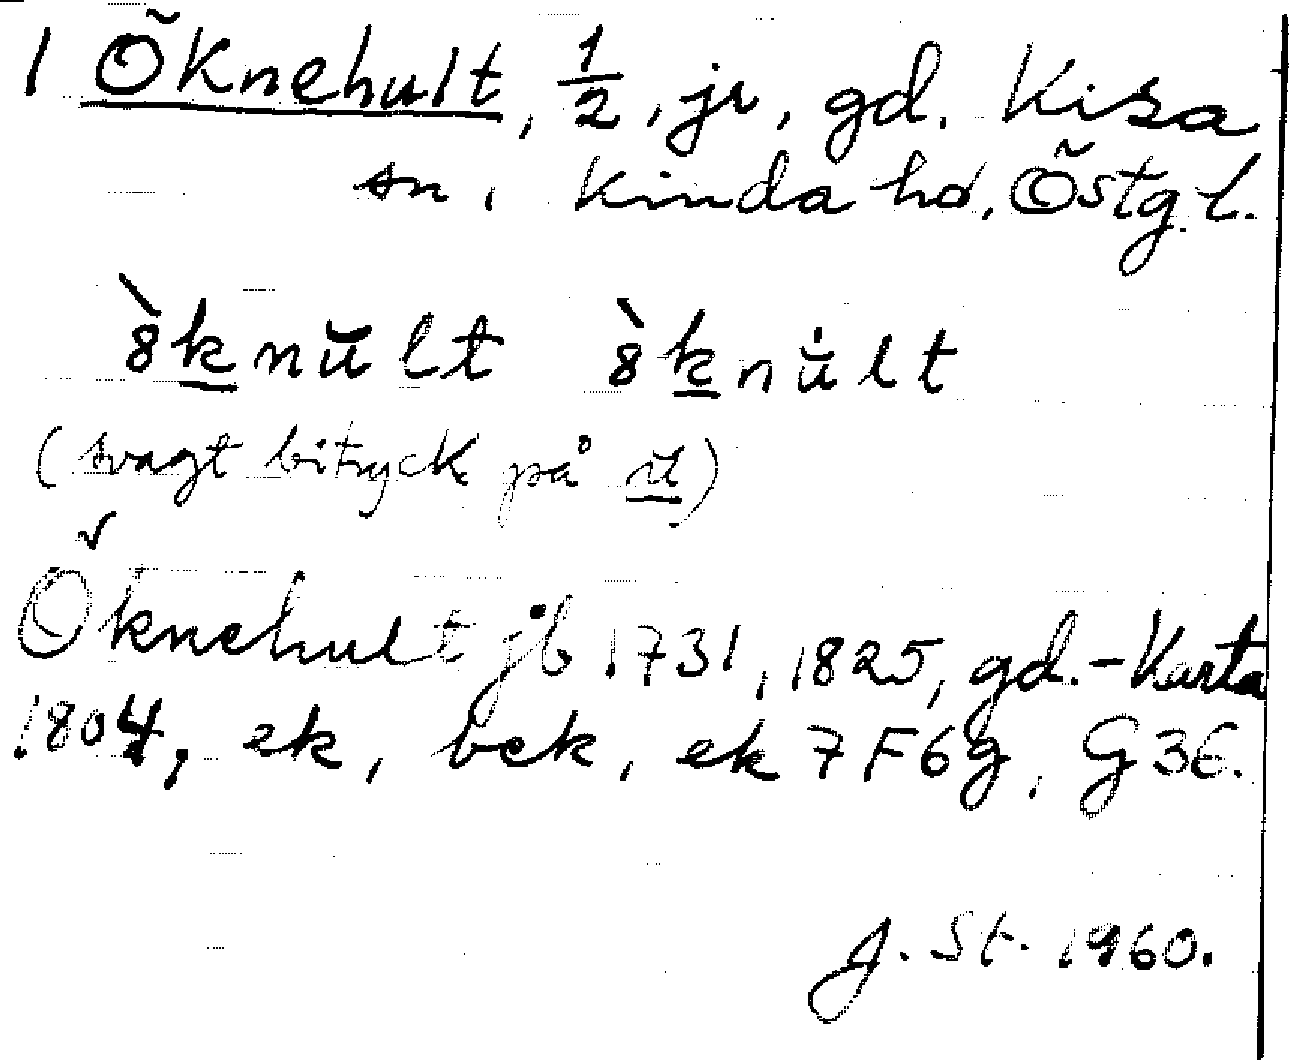 1 Öknehult, 1/2, jr, gd. Kisa
sn, Kinda hd, Östg. l.
8̀knŭlt 8̀knu̇lt
(svagt bitryck på ŭ)
Öknehult jb 1731, 1825, gd. - Karta
1804, ek, bek, ek 7F6g, G36.
J. St. 1960.